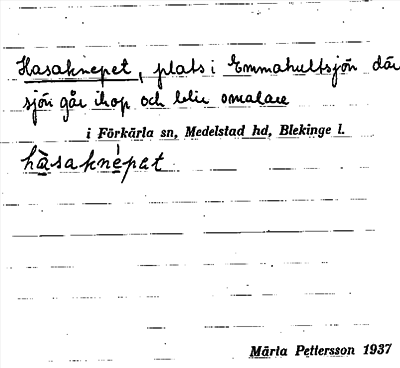 Hasaknepet, plats i Emmahultsjön där
sjön går ihop och blir smalare
i Förkärla sn, Medelstad hd, Blekinge l.
hàsaknépat
Märta Pettersson 1937